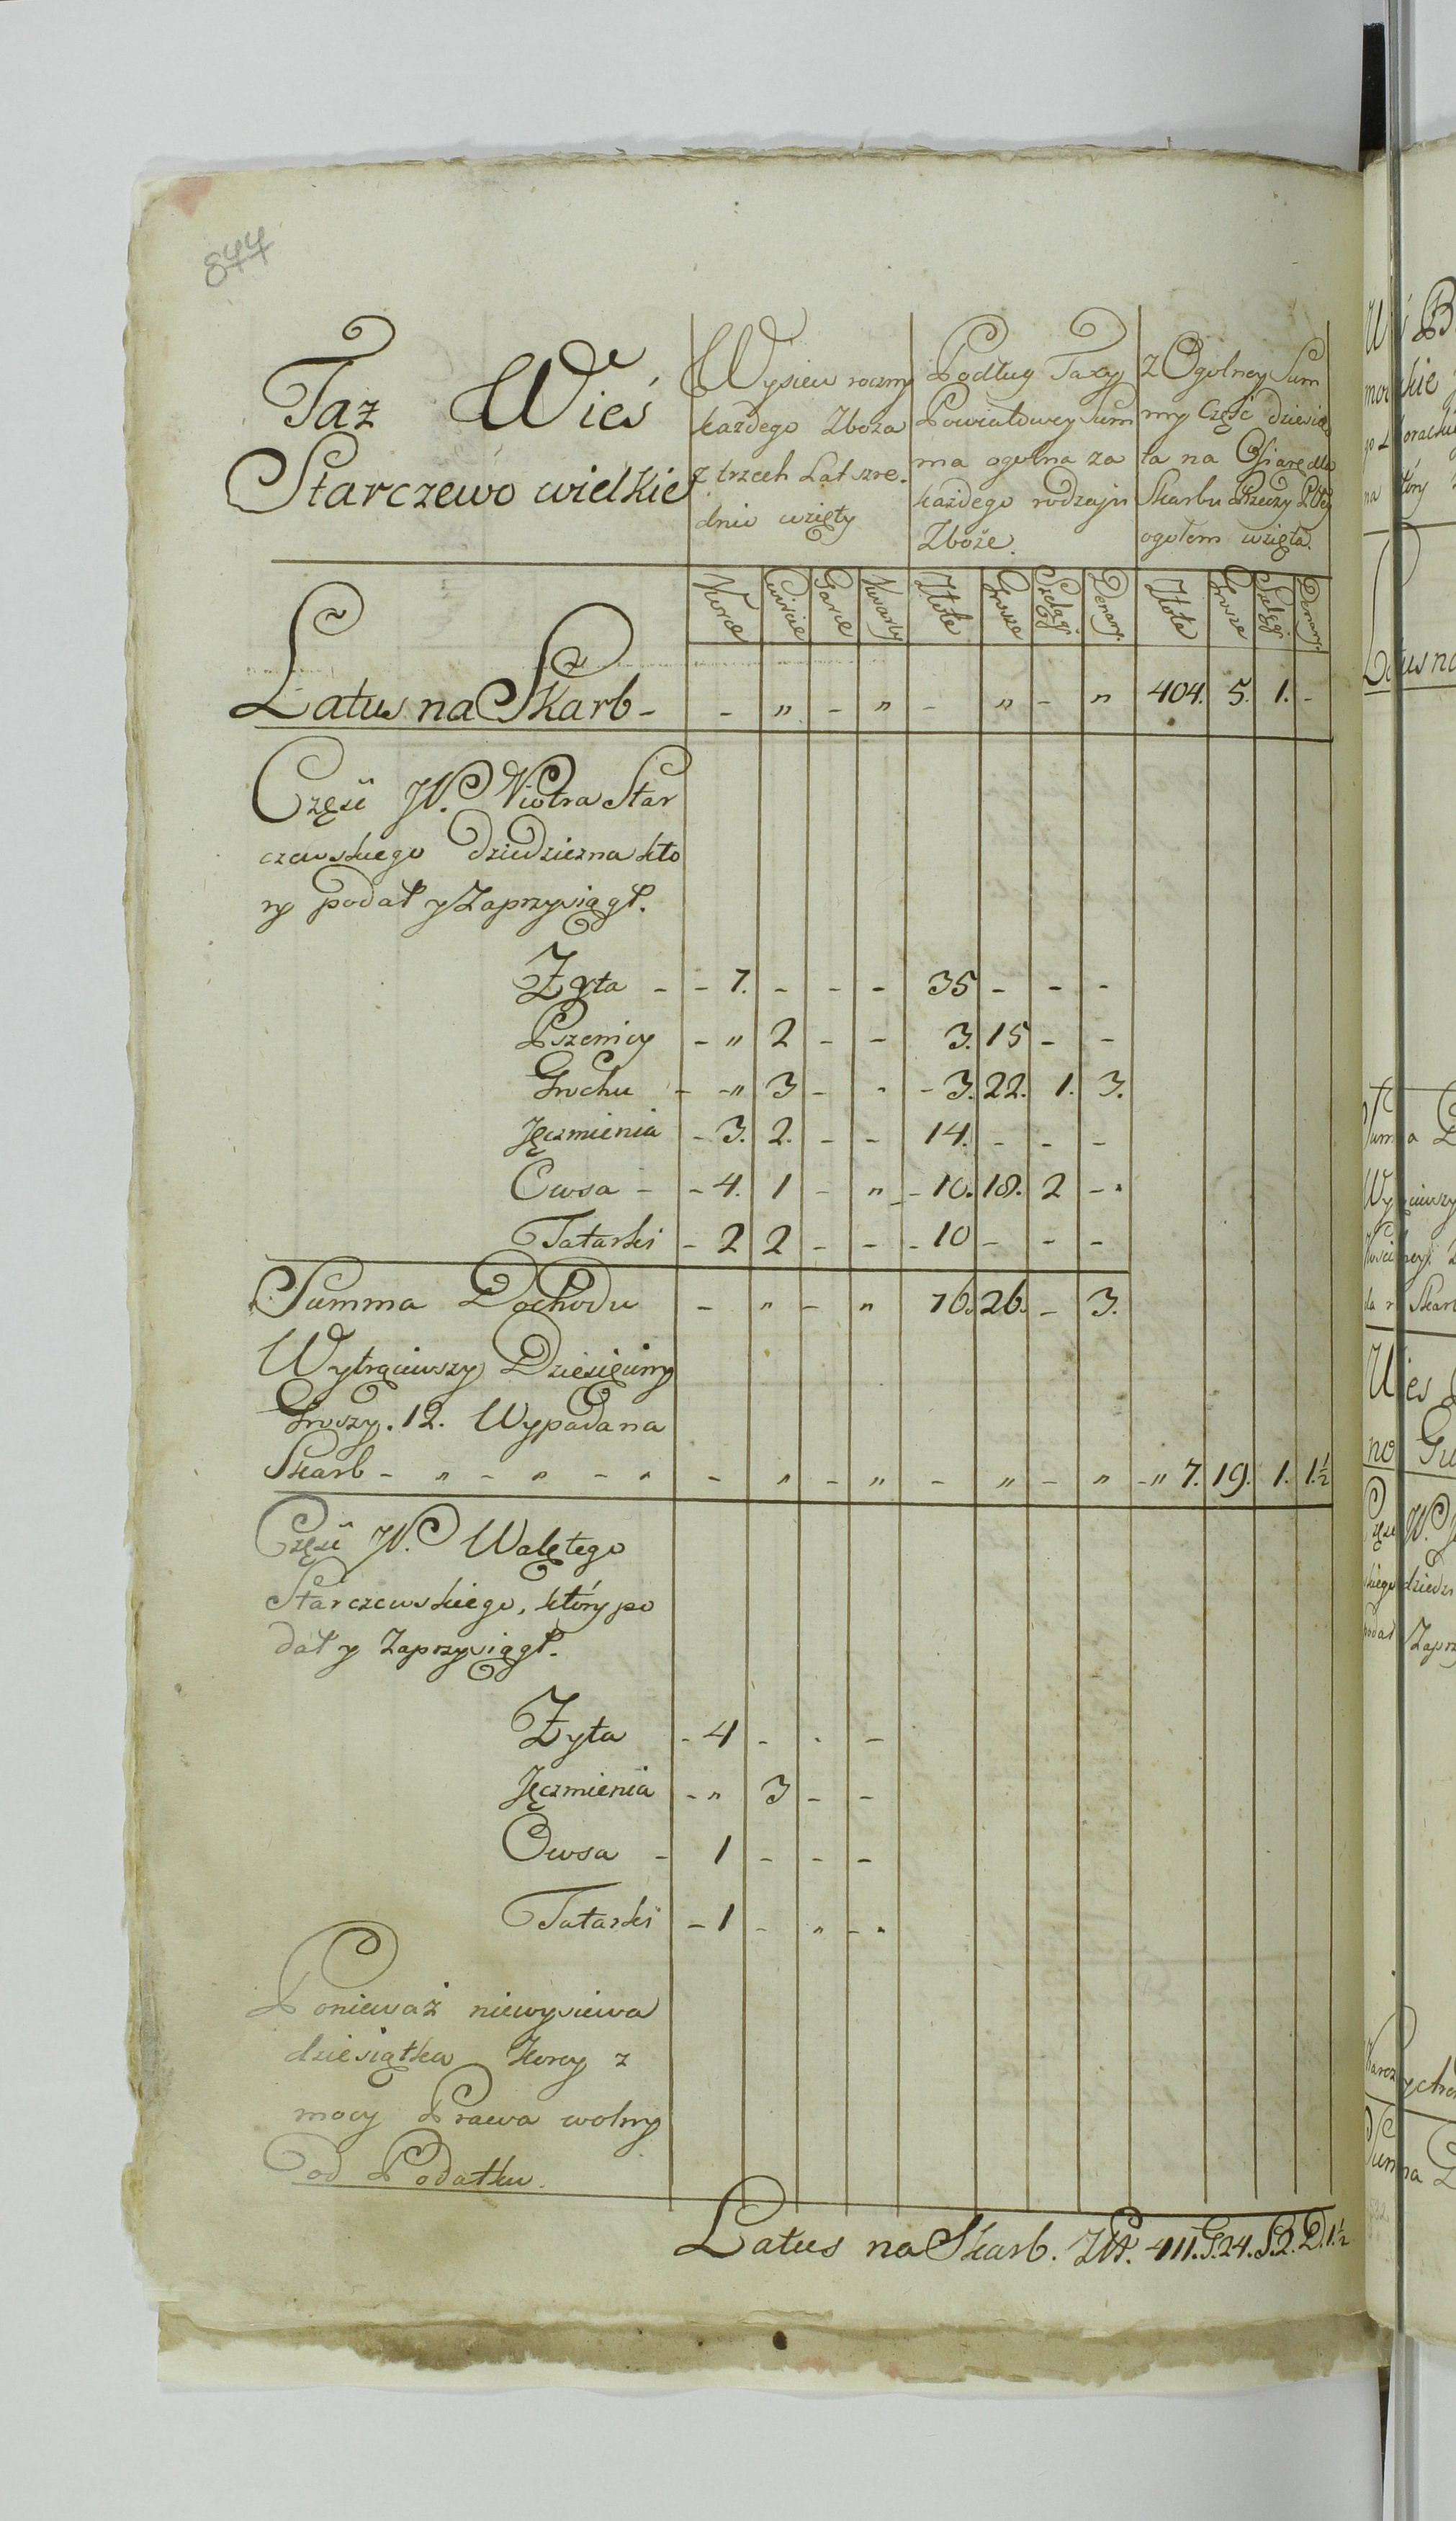 844
Taz Wieś
Starczewo wielkie
Wysiew roczny
kazdego Zboza
z trzech Lat szre.
dnio wzięty
Podług Taxy
Powiatowey Sum
ma ogolna za
każdego rodzaju
Zboże.
Z Ogolney Sum
my Część dziesią
ta na Ofiarę dla
Skarbu Rzeczy Pltey
ogołem wzięta.
Korce Cwircie Garce Kwarty Złote Grosze Szelągi Denary. Złote Grosze Szelągi Denary
Latus na Skarb - - " - " - " - " 404. 5. 1. -
Część W. P. Piotra Star
czewskiego Dziedziczna kto
ry podał y Zaprzysiągł.
Zyta - - 7. - - - 35 - - -
Pszenicy - " 2 - - 3. 15 - -
Grochu - - " 3 - - - 3. 22. 1. 3.
Jęczmienia - 3. 2. - - 14. - - -
Owsa - - 4. 1 - " - 10. 18. 2 -
Tatarki - 2 2 - - - 10 - - -
Summa Dochodu - " - " 76. 26. - 3.
Wytrąciwszy Dziesięciny
Groszy. 12. Wypada na
Skarb - " - " - " - " - " - " - " - " 7. 19. 1. 1½
Część W. P. Walętego
Starczewskiego, który po
dał y Zaprzysiągł.
Zyta - 4 - - -
Jęczmienia - " 3 - -
Owsa - 1 - - -
Tatarki - 1 - " -
Ponieważ niewysiewa
dziesiątka Korcy z
mocy Prawa wolny
od Podatku.
Latus na Skarb. Złt. 411. G. 24. S. 2. D. 1½